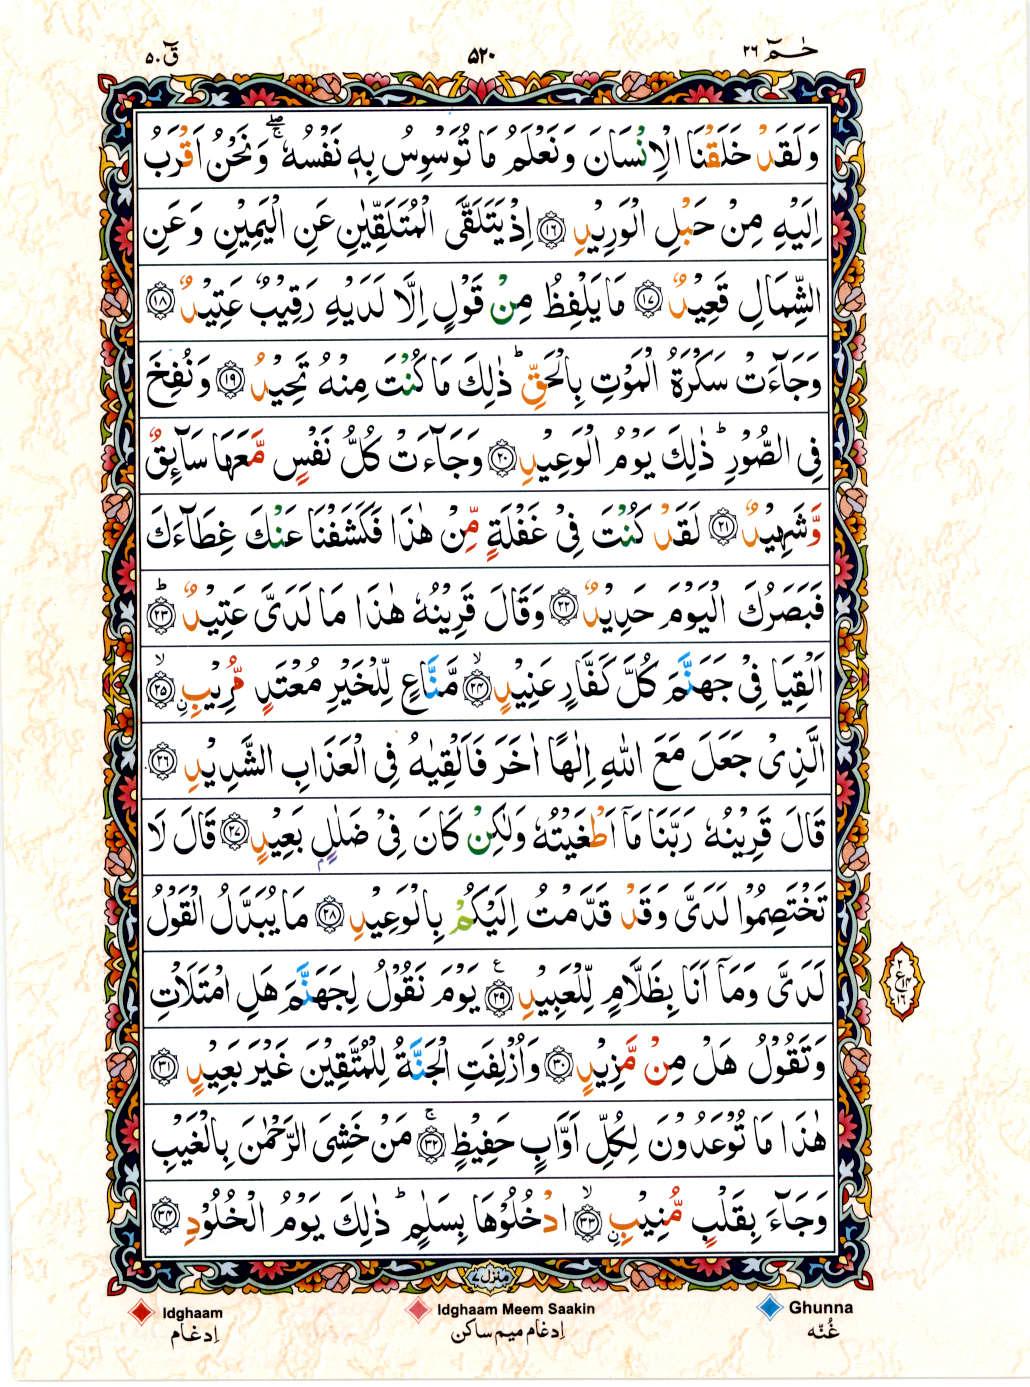 قٓ ٥٠ ٥٢٠ حٰمٓ ٢٦
وَلَقَدْ خَلَقْنَا الْاِنْسَانَ وَنَعْلَمُ مَا تُوَسْوِسُ بِهٖ نَفْسُهٗ ۖۚ وَنَحْنُ اَقْرَبُ
اِلَيْهِ مِنْ حَبْلِ الْوَرِيْدِ ﴿١٦﴾ اِذْ يَتَلَقَّى الْمُتَلَقِّيٰنِ عَنِ الْيَمِيْنِ وَعَنِ
الشِّمَالِ قَعِيْدٌ ﴿١٧﴾ مَا يَلْفِظُ مِنْ قَوْلٍ اِلَّا لَدَيْهِ رَقِيْبٌ عَتِيْدٌ ﴿١٨﴾
وَجَآءَتْ سَكْرَةُ الْمَوْتِ بِالْحَقِّ ؕ ذٰلِكَ مَا كُنْتَ مِنْهُ تَحِيْدُ ﴿١٩﴾ وَنُفِخَ
فِى الصُّوْرِ ؕ ذٰلِكَ يَوْمُ الْوَعِيْدِ ﴿٢٠﴾ وَجَآءَتْ كُلُّ نَفْسٍ مَّعَهَا سَآئِقٌ
وَّشَهِيْدٌ ﴿٢١﴾ لَقَدْ كُنْتَ فِىْ غَفْلَةٍ مِّنْ هٰذَا فَكَشَفْنَا عَنْكَ غِطَآءَكَ
فَبَصَرُكَ الْيَوْمَ حَدِيْدٌ ﴿٢٢﴾ وَقَالَ قَرِيْنُهٗ هٰذَا مَا لَدَىَّ عَتِيْدٌ ؕ ﴿٢٣﴾
اَلْقِيَا فِىْ جَهَنَّمَ كُلَّ كَفَّارٍ عَنِيْدٍ ۙ ﴿٢٤﴾ مَّنَّاعٍ لِّلْخَيْرِ مُعْتَدٍ مُّرِيْبِ ۨ ۙ ﴿٢٥﴾
الَّذِىْ جَعَلَ مَعَ اللّٰهِ اِلٰهًا اٰخَرَ فَاَلْقِيٰهُ فِى الْعَذَابِ الشَّدِيْدِ ﴿٢٦﴾
قَالَ قَرِيْنُهٗ رَبَّنَا مَاۤ اَطْغَيْتُهٗ وَلٰكِنْ كَانَ فِىْ ضَلٰلٍۢ بَعِيْدٍ ﴿٢٧﴾ قَالَ لَا
تَخْتَصِمُوْا لَدَىَّ وَقَدْ قَدَّمْتُ اِلَيْكُمْ بِالْوَعِيْدِ ﴿٢٨﴾ مَا يُبَدَّلُ الْقَوْلُ
لَدَىَّ وَمَاۤ اَنَا بِظَلَّامٍ لِّلْعَبِيْدِ ع ﴿٢٩﴾ يَوْمَ نَقُوْلُ لِجَهَنَّمَ هَلِ امْتَلَاْتِ
وَتَقُوْلُ هَلْ مِنْ مَّزِيْدٍ ﴿٣٠﴾ وَاُزْلِفَتِ الْجَنَّةُ لِلْمُتَّقِيْنَ غَيْرَ بَعِيْدٍ ﴿٣١﴾
هٰذَا مَا تُوْعَدُوْنَ لِكُلِّ اَوَّابٍ حَفِيْظٍ ۚ ﴿٣٢﴾ مَنْ خَشِىَ الرَّحْمٰنَ بِالْغَيْبِ
وَجَآءَ بِقَلْبٍ مُّنِيْبِ ۨ ۙ ﴿٣٣﴾ ادْخُلُوْهَا بِسَلٰمٍ ؕ ذٰلِكَ يَوْمُ الْخُلُوْدِ ﴿٣٤﴾
منزل ٧
Idghaam Idghaam Meem Saakin Ghunna
اِدغام اِدغام میم ساکن غُنّه